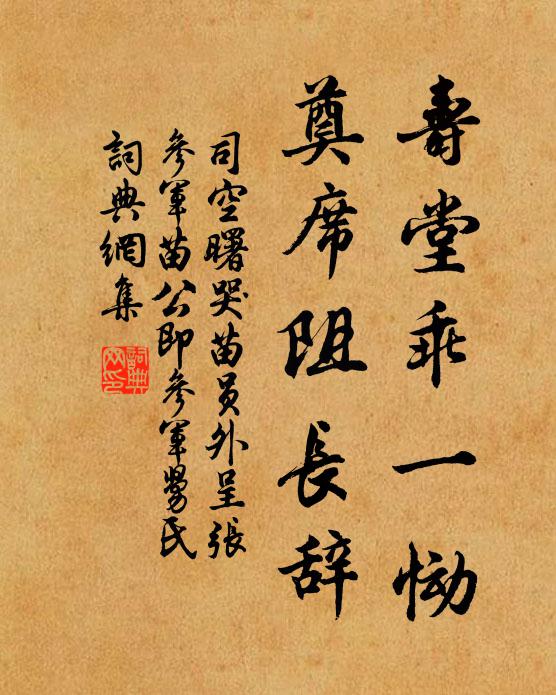 壽堂乖一慟
奠席阻長辞
司空曙哭苗員外呈張
參軍苗公即參軍舅氏
詞典網集
詞典網印